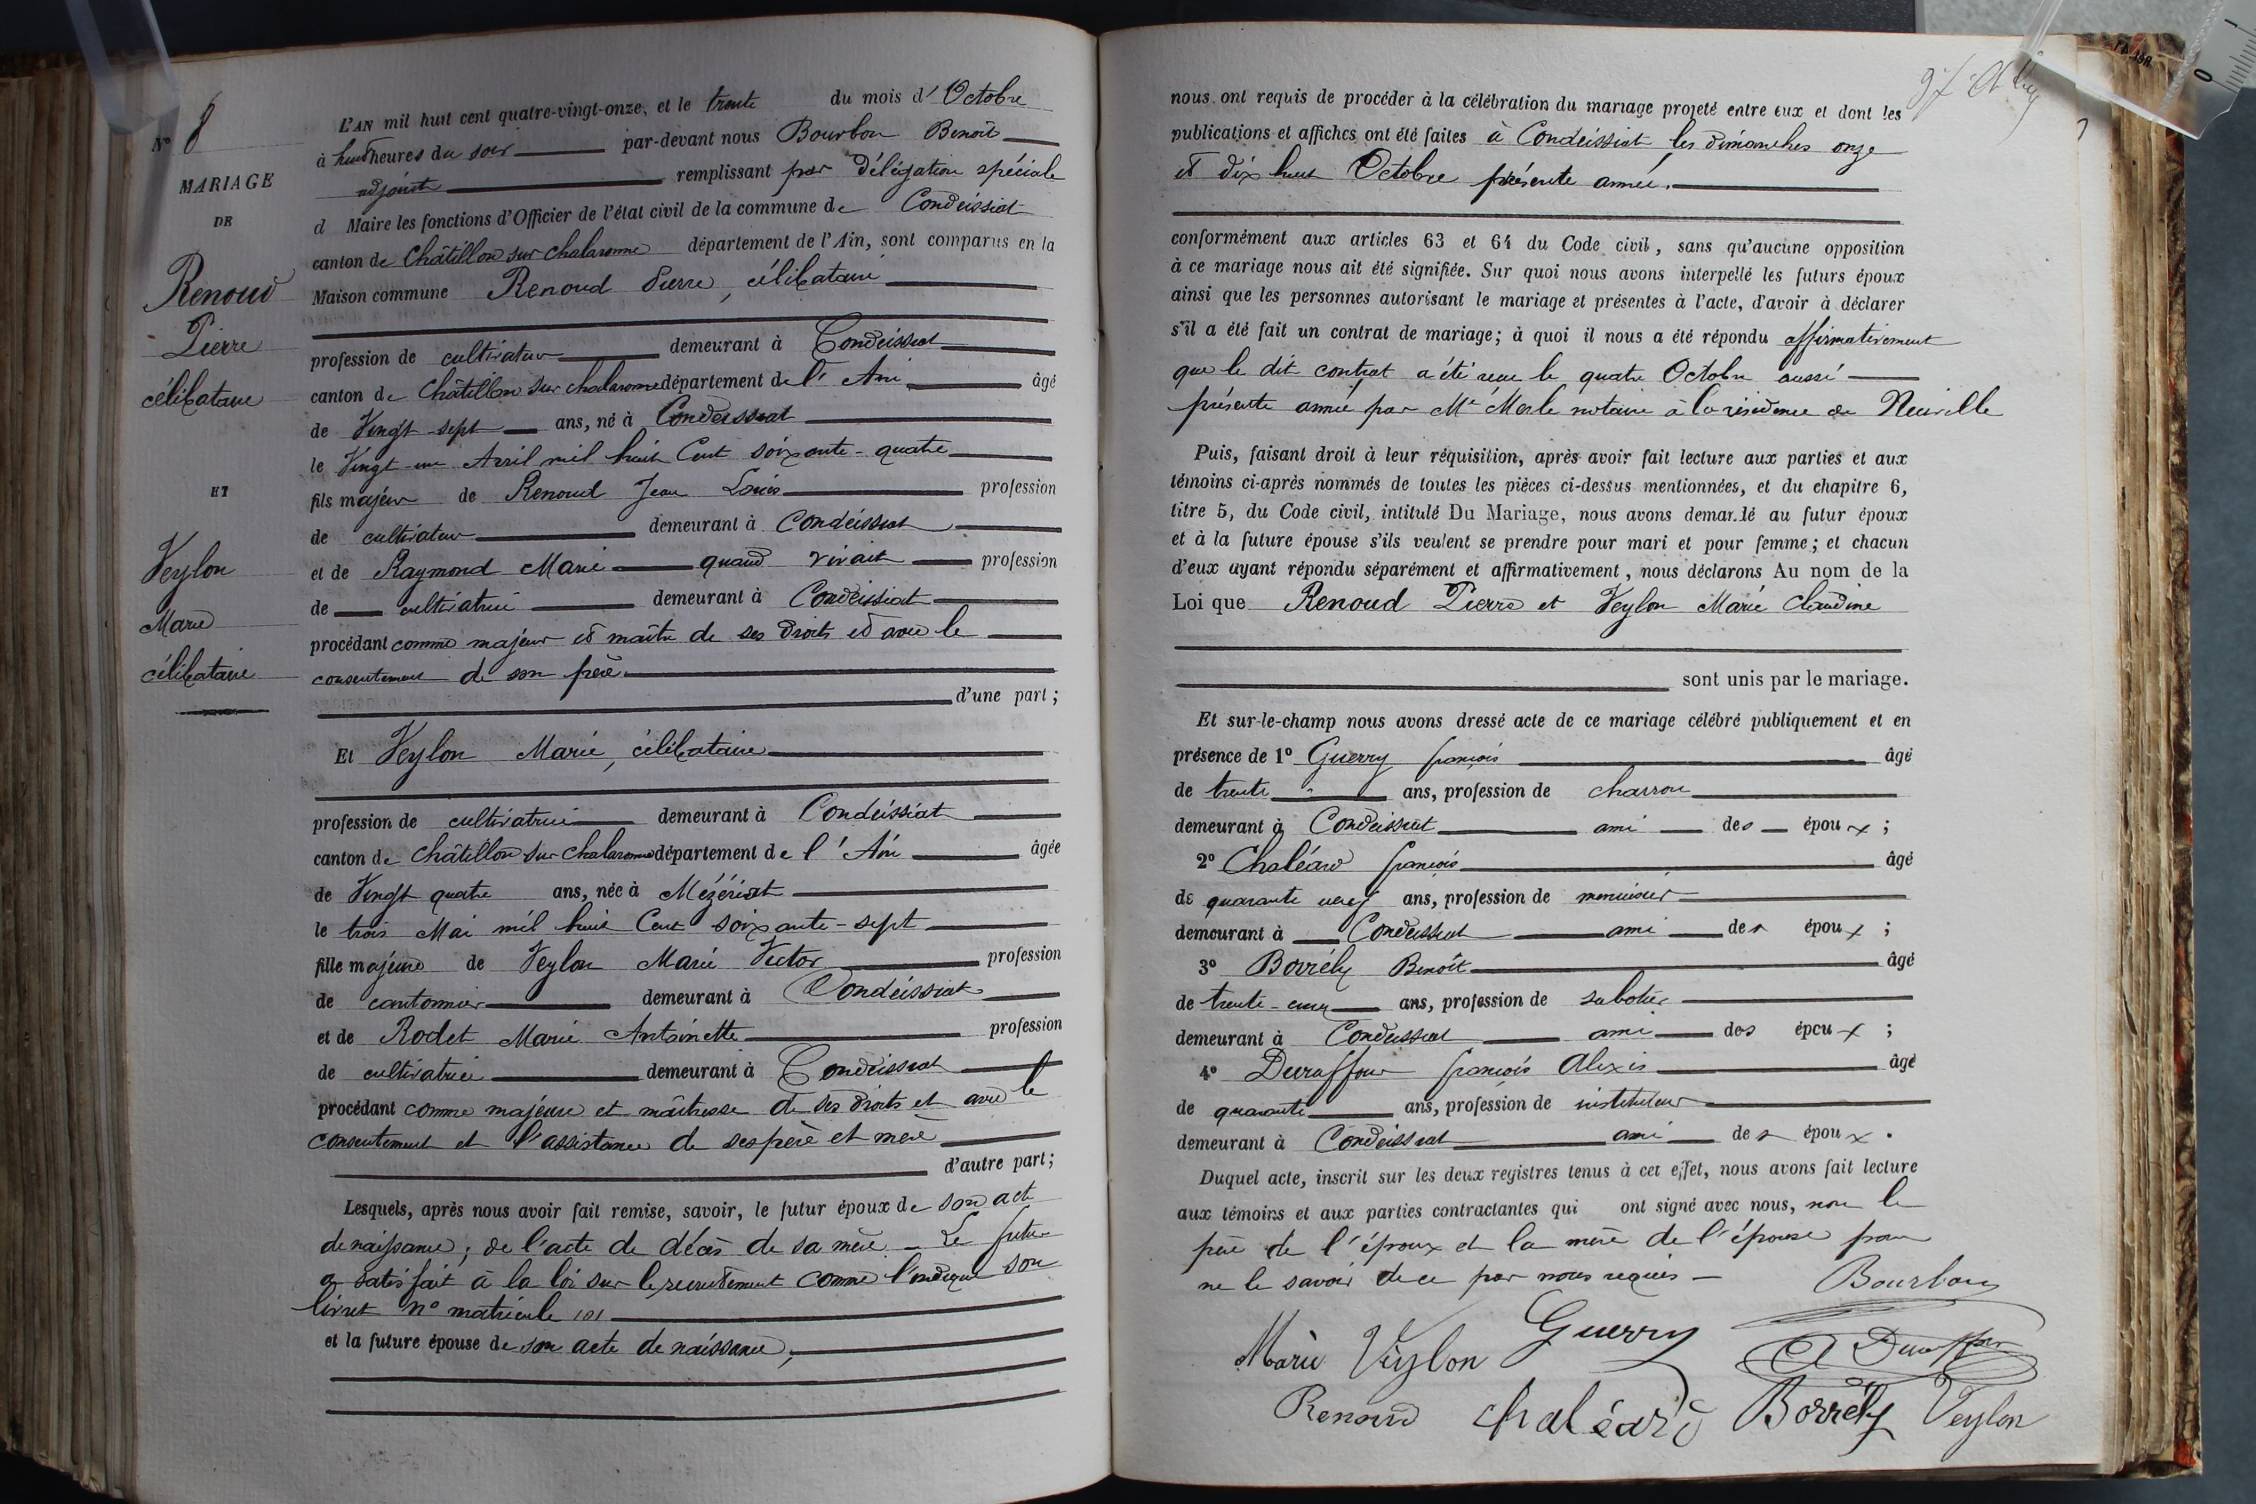 N° 8
MARIAGE
DE
Renoud
Pierre
célibataire
ET
Veylon
Marie
célibataire
L'AN mil huit cent quatre-vingt-onze, et le trente du mois d'Octobre
à huit heures du soir par-devant nous Bourbon Benoît
adjoint remplissant par délégation spéciale
d Maire les fonctions d'Officier de l'état civil de la commune de Condeissiat
canton de Châtillon sur Chalaronne département de l'Ain, sont comparus en la
Maison commune Renoud Pierre, célibataire
profession de cultivateur demeurant à Condeissiat
canton de Châtillon sur Chalaronne département de l'Ain âgé
de Vingt-sept ans, né à Condeissiat
le Vingt-un Avril mil huit Cent soixante-quatre
fils majeur de Renoud Jean Louis profession
de cultivateur demeurant à Condeissiat
et de Raymond Marie quand vivait profession
de cultivatrice demeurant à Condeissiat
procédant comme majeur et maître de ses droits et avec le
consentement de son père
d'une part ;
Et Veylon Marie, célibataire
profession de cultivatrice demeurant à Condeissiat
canton de Châtillon sur Chalaronne département de l'Ain âgée
de Vingt quatre ans, née à Mézériat
le trois Mai mil huit Cent soixante-sept
fille majeure de Veylon Marie Victor profession
de cantonnier demeurant à Condeissiat
et de Rodet Marie Antoinette profession
de cultivatrice demeurant à Condeissiat
procédant comme majeure et maîtresse de ses droits et avec le
consentement et l'assistance de ses père et mère
d'autre part ;
Lesquels, après nous avoir fait remise, savoir, le futur époux de son acte
de naissance, de l'acte de décès de sa mère - Le futur
a satisfait à la loi sur le recrutement comme l'indique son
livret n° matricule 101
et la future épouse de son acte de naissance,
nous ont requis de procéder à la célébration du mariage projeté entre eux et dont les
publications et affiches ont été faites à Condeissiat les dimanches onze
et dix huit Octobre présente année.
conformément aux articles 63 et 64 du Code civil, sans qu'aucune opposition
à ce mariage nous ait été signifiée. Sur quoi nous avons interpellé les futurs époux
ainsi que les personnes autorisant le mariage et présentes à l'acte, d'avoir à déclarer
s'il a été fait un contrat de mariage ; à quoi il nous a été répondu affirmativement
que le dit contrat a été reçu le quatre Octobre aussi
présente année par Me Merle notaire à la résidence de Neuville
Puis, faisant droit à leur réquisition, après avoir fait lecture aux parties et aux
témoins ci-après nommés de toutes les pièces ci-dessus mentionnées, et du chapitre 6,
titre 5, du Code civil, intitulé Du Mariage, nous avons demandé au futur époux
et à la future épouse s'ils veulent se prendre pour mari et pour femme ; et chacun
d'eux ayant répondu séparément et affirmativement, nous déclarons Au nom de la
Loi que Renoud Pierre et Veylon Marie Claudine
sont unis par le mariage.
Et sur-le-champ nous avons dressé acte de ce mariage célébré publiquement et en
présence de 1° Guerry françois âgé
de trente ans, profession de charron
demeurant à Condeissiat ami des époux ;
2° Chaléard françois âgé
de quarante neuf ans, profession de menuisier
demeurant à Condeissiat ami des époux ;
3° Borrély Benoît âgé
de trente-cinq ans, profession de sabotier
demeurant à Condeissiat ami des époux ;
4° Duraffour françois Alexis âgé
de quarante ans, profession de instituteur
demeurant à Condeissiat ami des époux.
Duquel acte, inscrit sur les deux registres tenus à cet effet, nous avons fait lecture
aux témoins et aux parties contractantes qui ont signé avec nous, non le
père de l'époux et la mère de l'épouse pour
ne le savoir de ce par nous requis - Bourbon
Guerry
Marie Veylon A Duraffour
Renoud Chaléard Borrély Veylon